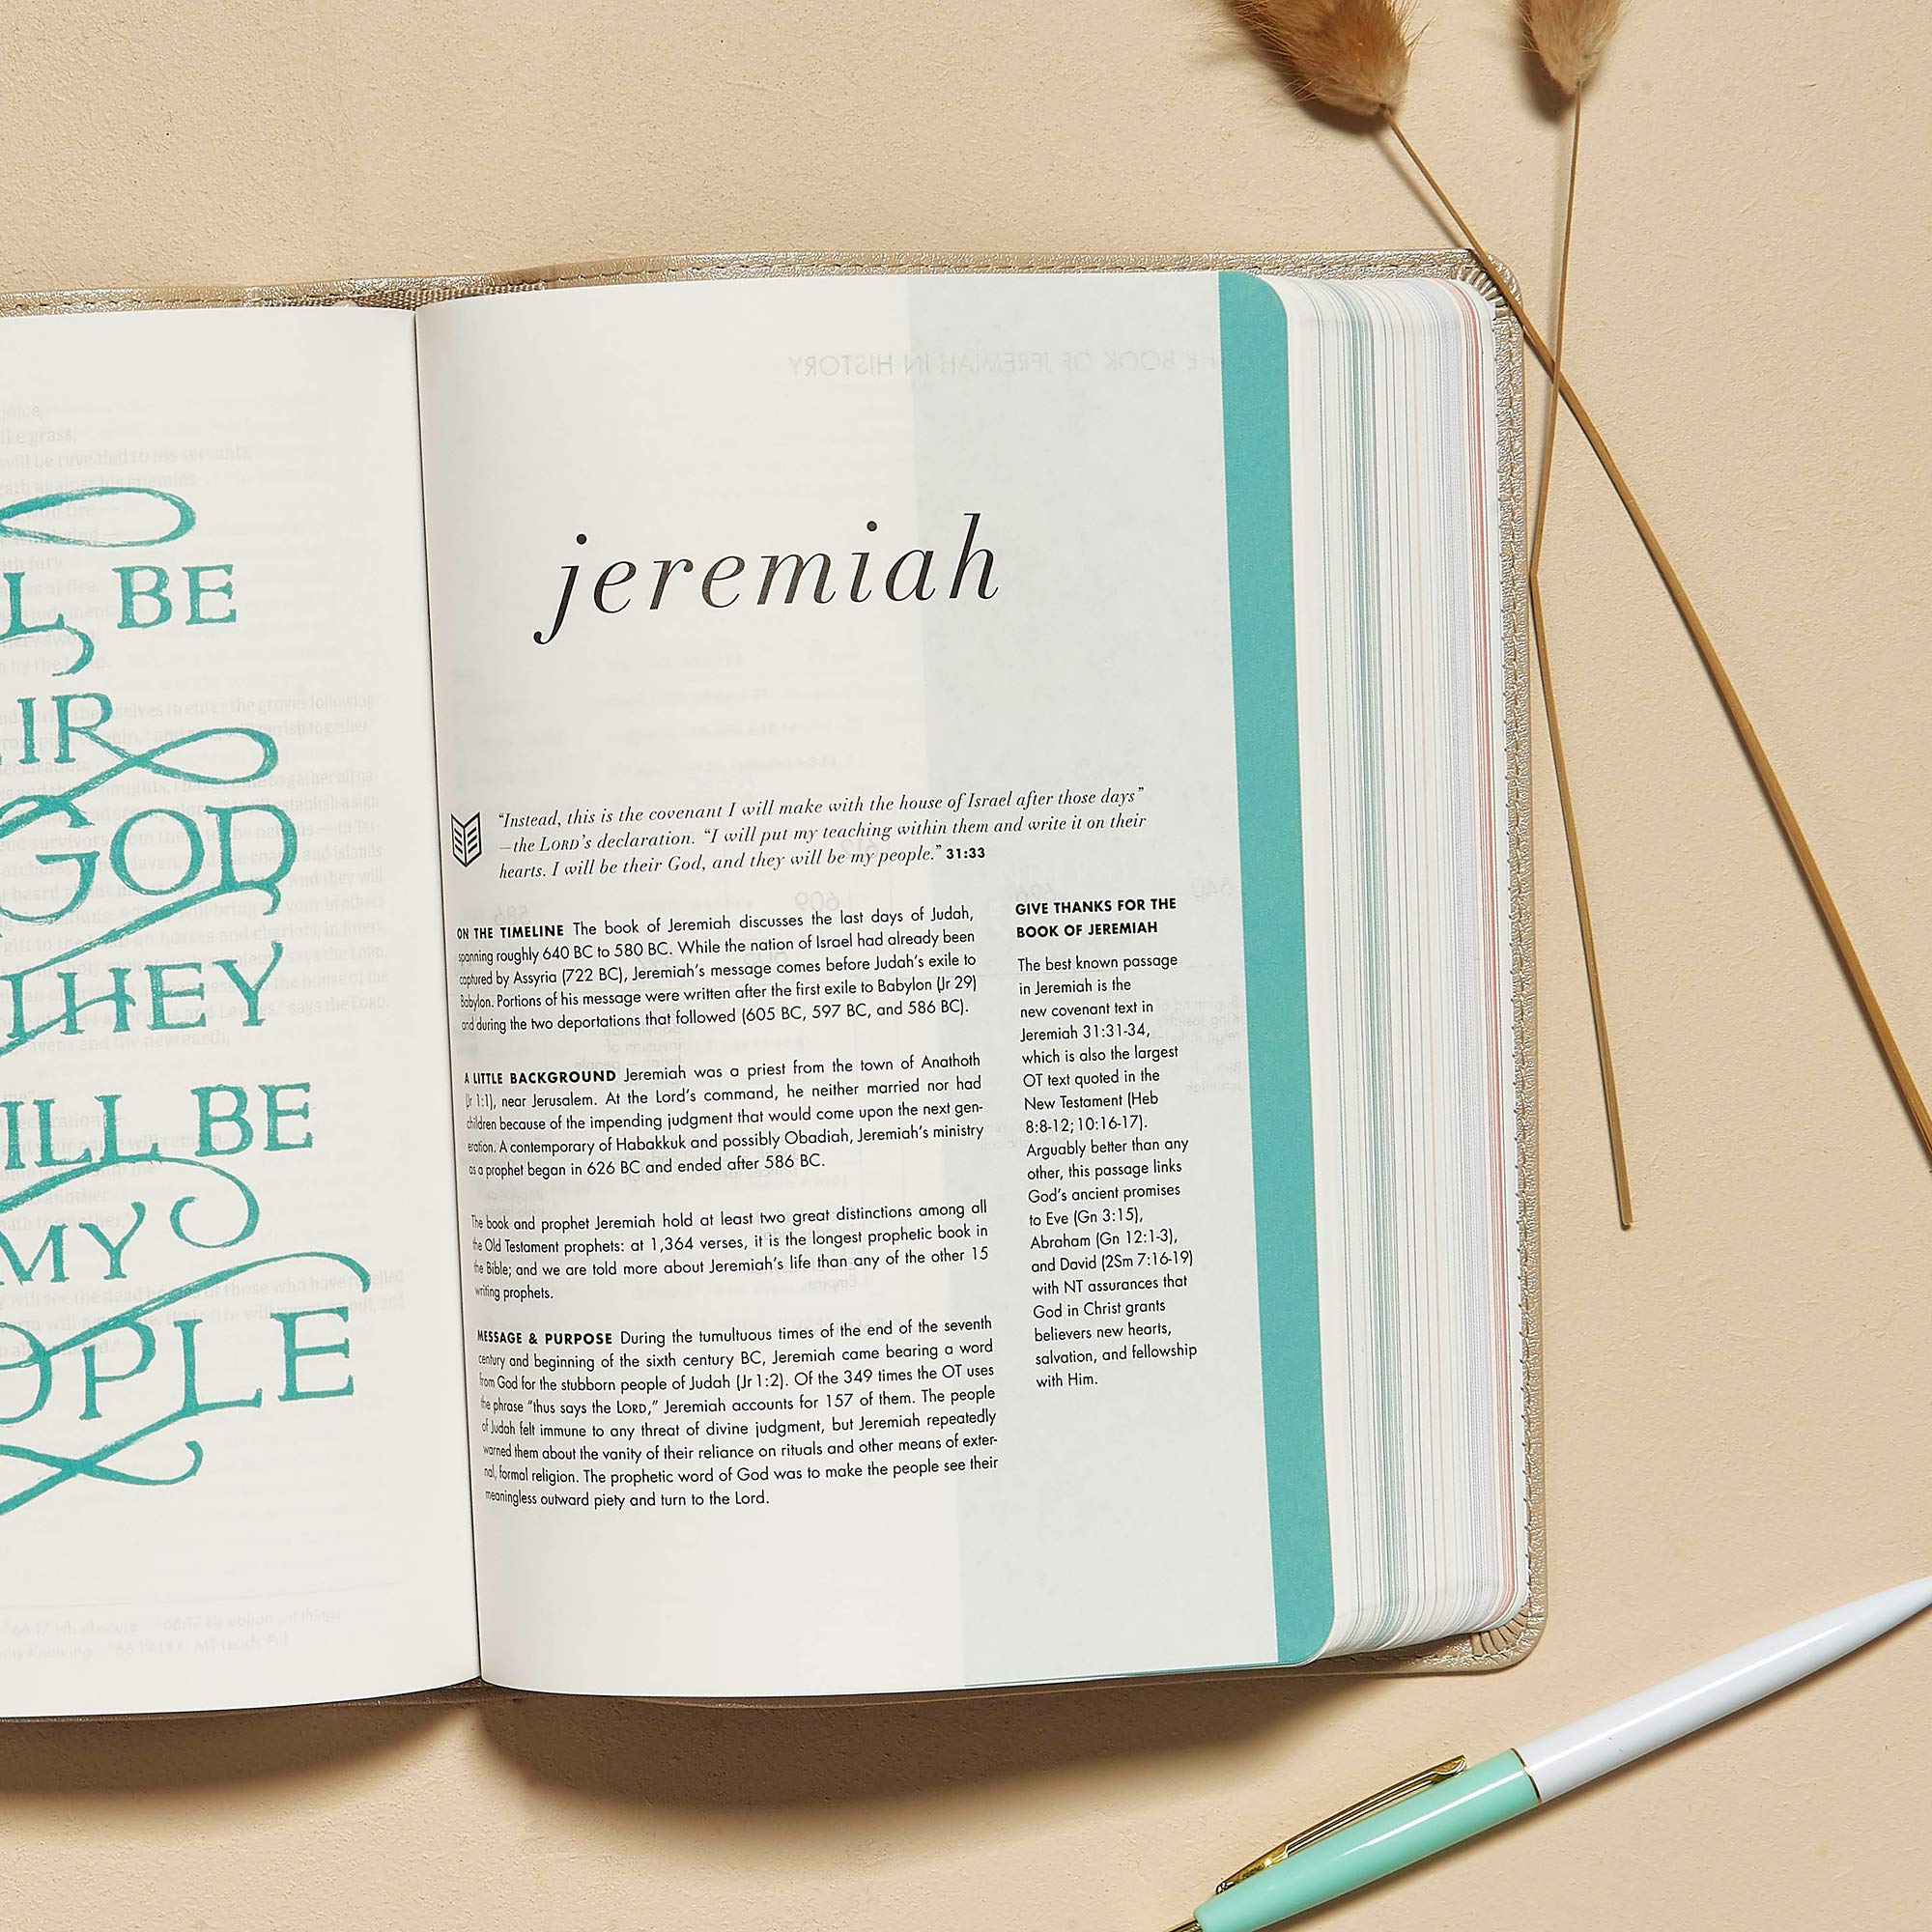 L BE
IR
GOD
THEY
ILL BE
MY
OPLE
jeremiah
“Instead, this is the covenant I will make with the house of Israel after those days”
—the LORD’s declaration. “I will put my teaching within them and write it on their
hearts. I will be their God, and they will be my people.” 31:33
ON THE TIMELINE The book of Jeremiah discusses the last days of Judah,
spanning roughly 640 BC to 580 BC. While the nation of Israel had already been
captured by Assyria (722 BC), Jeremiah’s message comes before Judah’s exile to
Babylon. Portions of his message were written after the first exile to Babylon (Jr 29)
and during the two deportations that followed (605 BC, 597 BC, and 586 BC).
A LITTLE BACKGROUND Jeremiah was a priest from the town of Anathoth
(Jr 1:1), near Jerusalem. At the Lord’s command, he neither married nor had
children because of the impending judgment that would come upon the next gen-
eration. A contemporary of Habakkuk and possibly Obadiah, Jeremiah’s ministry
as a prophet began in 626 BC and ended after 586 BC.
The book and prophet Jeremiah hold at least two great distinctions among all
the Old Testament prophets: at 1,364 verses, it is the longest prophetic book in
the Bible; and we are told more about Jeremiah’s life than any of the other 15
writing prophets.
MESSAGE & PURPOSE During the tumultuous times of the end of the seventh
century and beginning of the sixth century BC, Jeremiah came bearing a word
from God for the stubborn people of Judah (Jr 1:2). Of the 349 times the OT uses
the phrase “thus says the LORD,” Jeremiah accounts for 157 of them. The people
of Judah felt immune to any threat of divine judgment, but Jeremiah repeatedly
warned them about the vanity of their reliance on rituals and other means of exter-
nal, formal religion. The prophetic word of God was to make the people see their
meaningless outward piety and turn to the Lord.
GIVE THANKS FOR THE
BOOK OF JEREMIAH
The best known passage
in Jeremiah is the
new covenant text in
Jeremiah 31:31-34,
which is also the largest
OT text quoted in the
New Testament (Heb
8:8-12; 10:16-17).
Arguably better than any
other, this passage links
God’s ancient promises
to Eve (Gn 3:15),
Abraham (Gn 12:1-3),
and David (2Sm 7:16-19)
with NT assurances that
God in Christ grants
believers new hearts,
salvation, and fellowship
with Him.